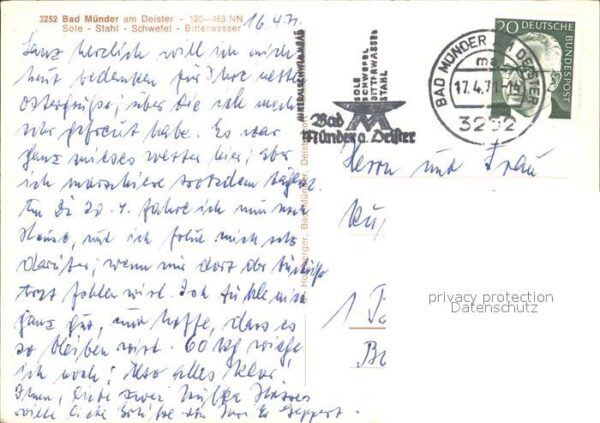 3252 Bad Münder am Deister - 120—463 NN
Sole - Stahl - Schwefel - Bitterwasser
16.4.71
Ganz herzlich will ich mich
heut bedanken für Ihre netten
Ostergrüße, über die ich mich
sehr gefreut habe. Es war
ganz mieses Wetter hier; aber
ich marschiere trotzdem
Am Di 20.4. fahre ich nun nach
Hause, und ich freue mich sehr
darüber, wenn mir dort der
Arzt fehlen wird. Ich fühle mich
ganz gut, und hoffe, dass es
so bleiben wird. 60 kg wiege
ich noch! Also alles klar!
Ihnen, liebe zwei
viele liebe Grüße von Ihrer
MINERALSCHWIMMBAD
SOLE
SCHWEFEL
BITTERWASSER
STAHL
Bad
Münder a. Deister
BAD MÜNDER AM DEISTER
ma
17.4.71-14
3252
20 DEUTSCHE
BUNDESPOST
Herrn und Frau
1
privacy protection
Datenschutz